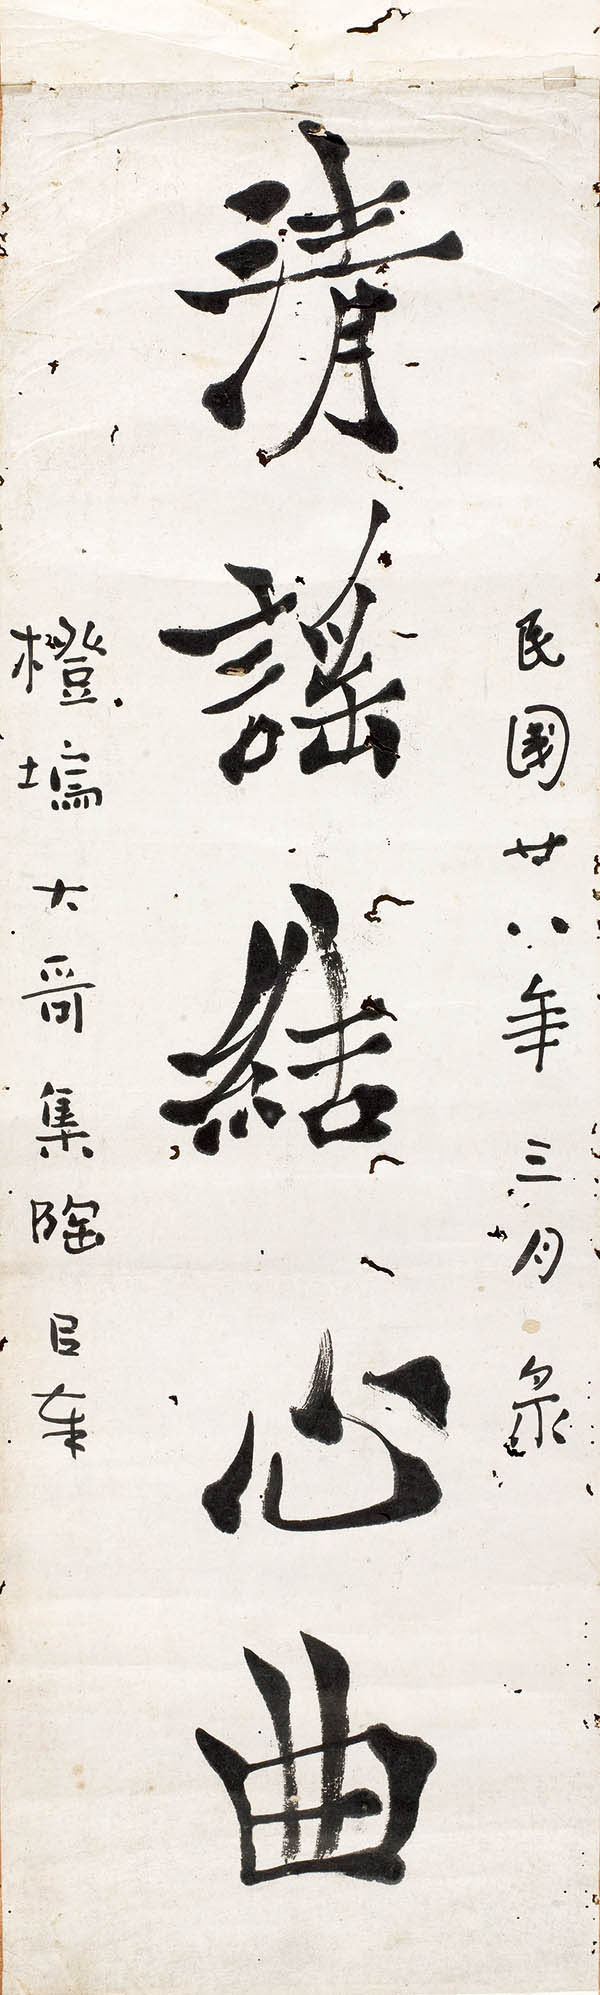 民國廿八年 三月 泉
清謠結心曲
橙塢 大哥 集陶 句奉